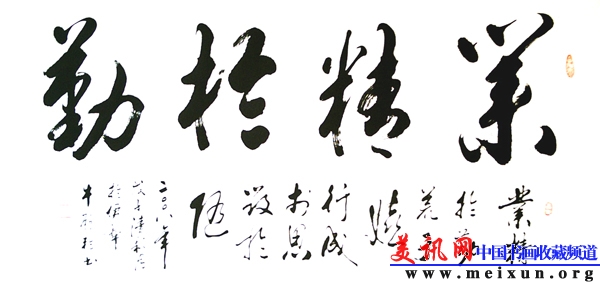 業精於勤
業精
於勤
荒于
嬉
行成
於思
毀於
随
二〇〇八年
美讯网 中国书画收藏频道
www.meixun.org